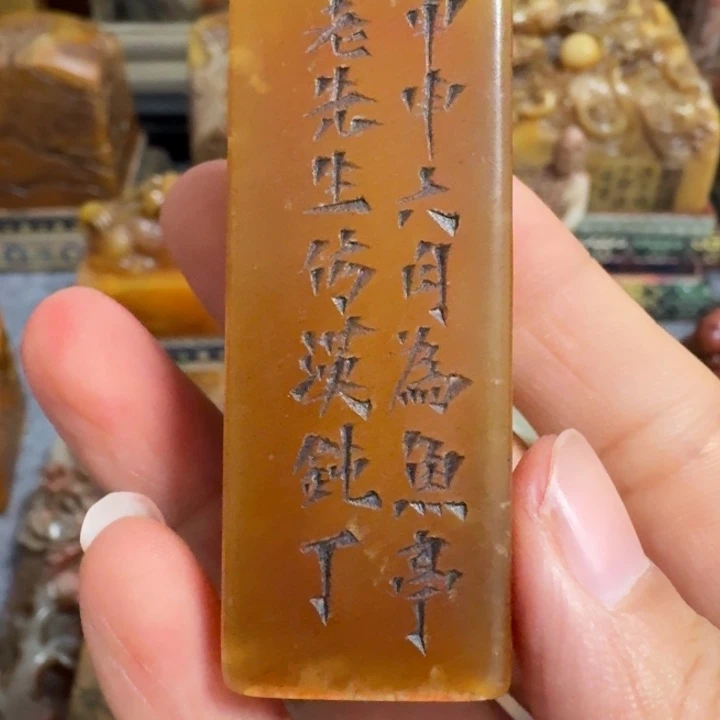 甲申六月為魚亭
老先生仿漢鈍丁